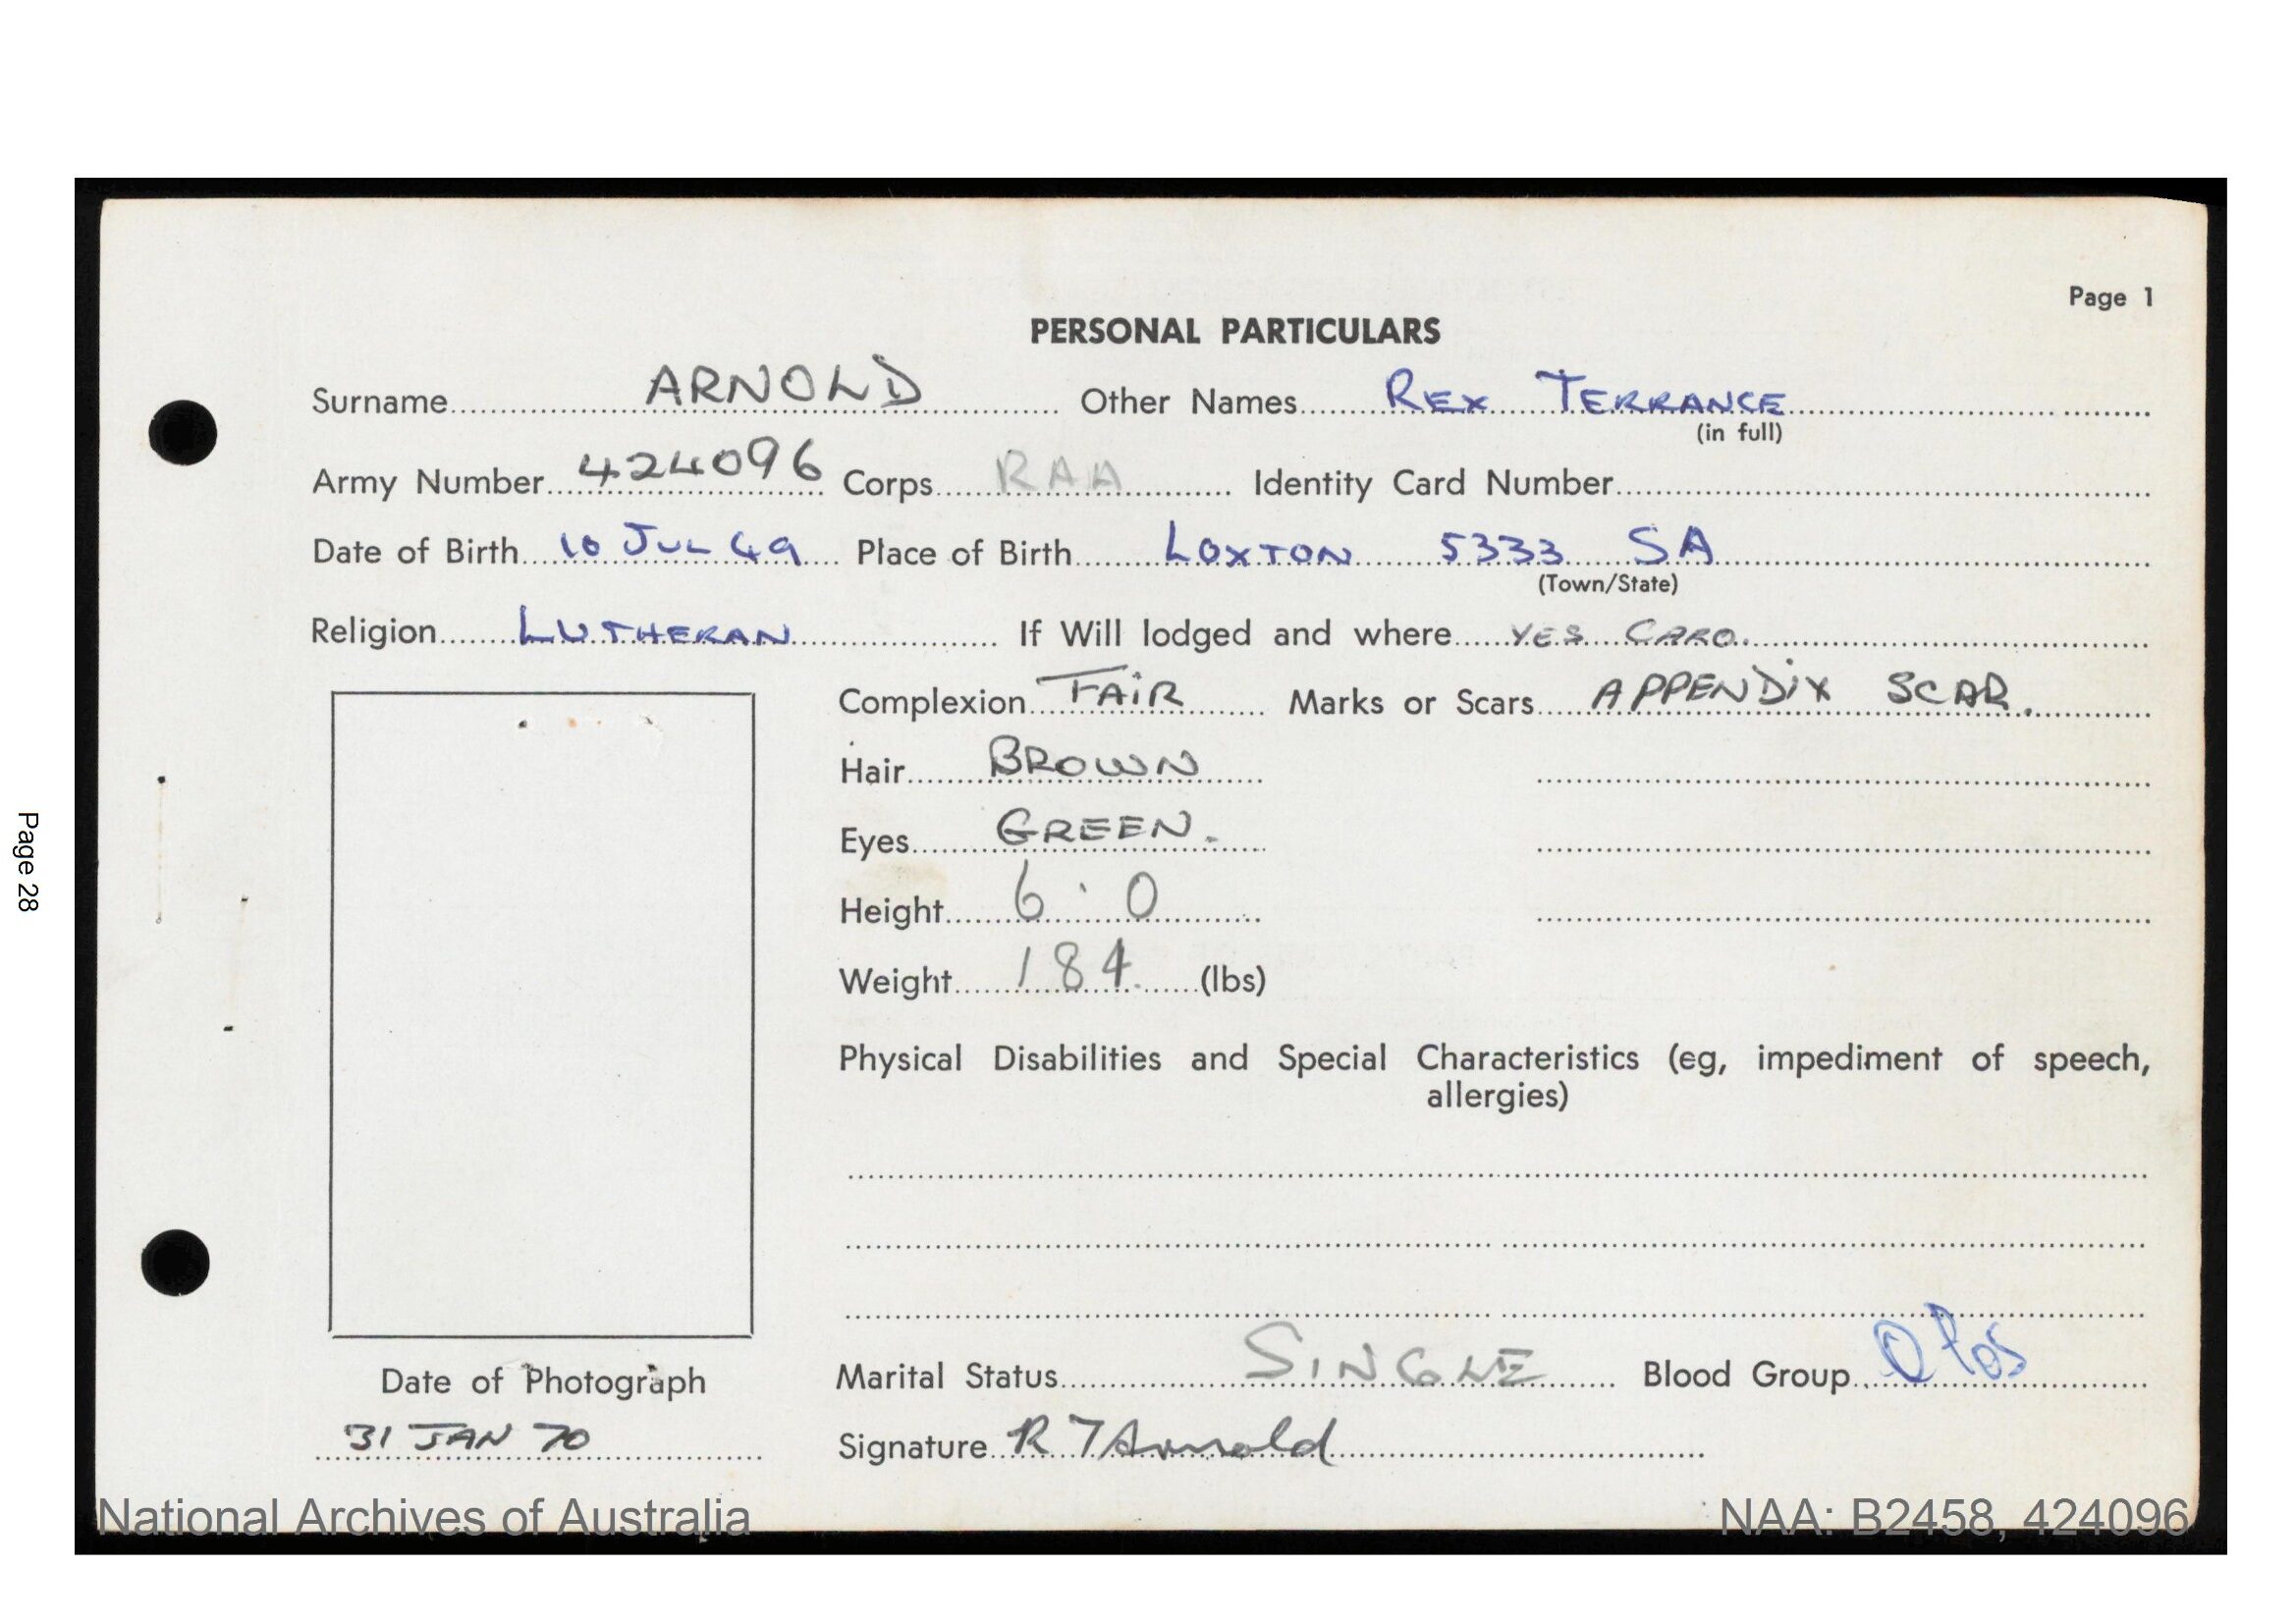 Page 1
PERSONAL PARTICULARS
Surname ARNOLD Other Names REX TERRANCE
(in full)
Army Number 424096 Corps RAA Identity Card Number
Date of Birth 10 JUL 49 Place of Birth LOXTON 5333 SA
(Town/State)
Religion LUTHERAN If Will lodged and where YES CARO.
Complexion FAIR Marks or Scars APPENDIX SCAR.
Hair BROWN
Eyes GREEN.
Height 6 · 0
Weight 184 (lbs)
Physical Disabilities and Special Characteristics (eg, impediment of speech,
allergies)
Marital Status SINGLE Blood Group O Pos
Date of Photograph
31 JAN 70
Signature R T Arnold
National Archives of Australia NAA: B2458, 424096
Page 28